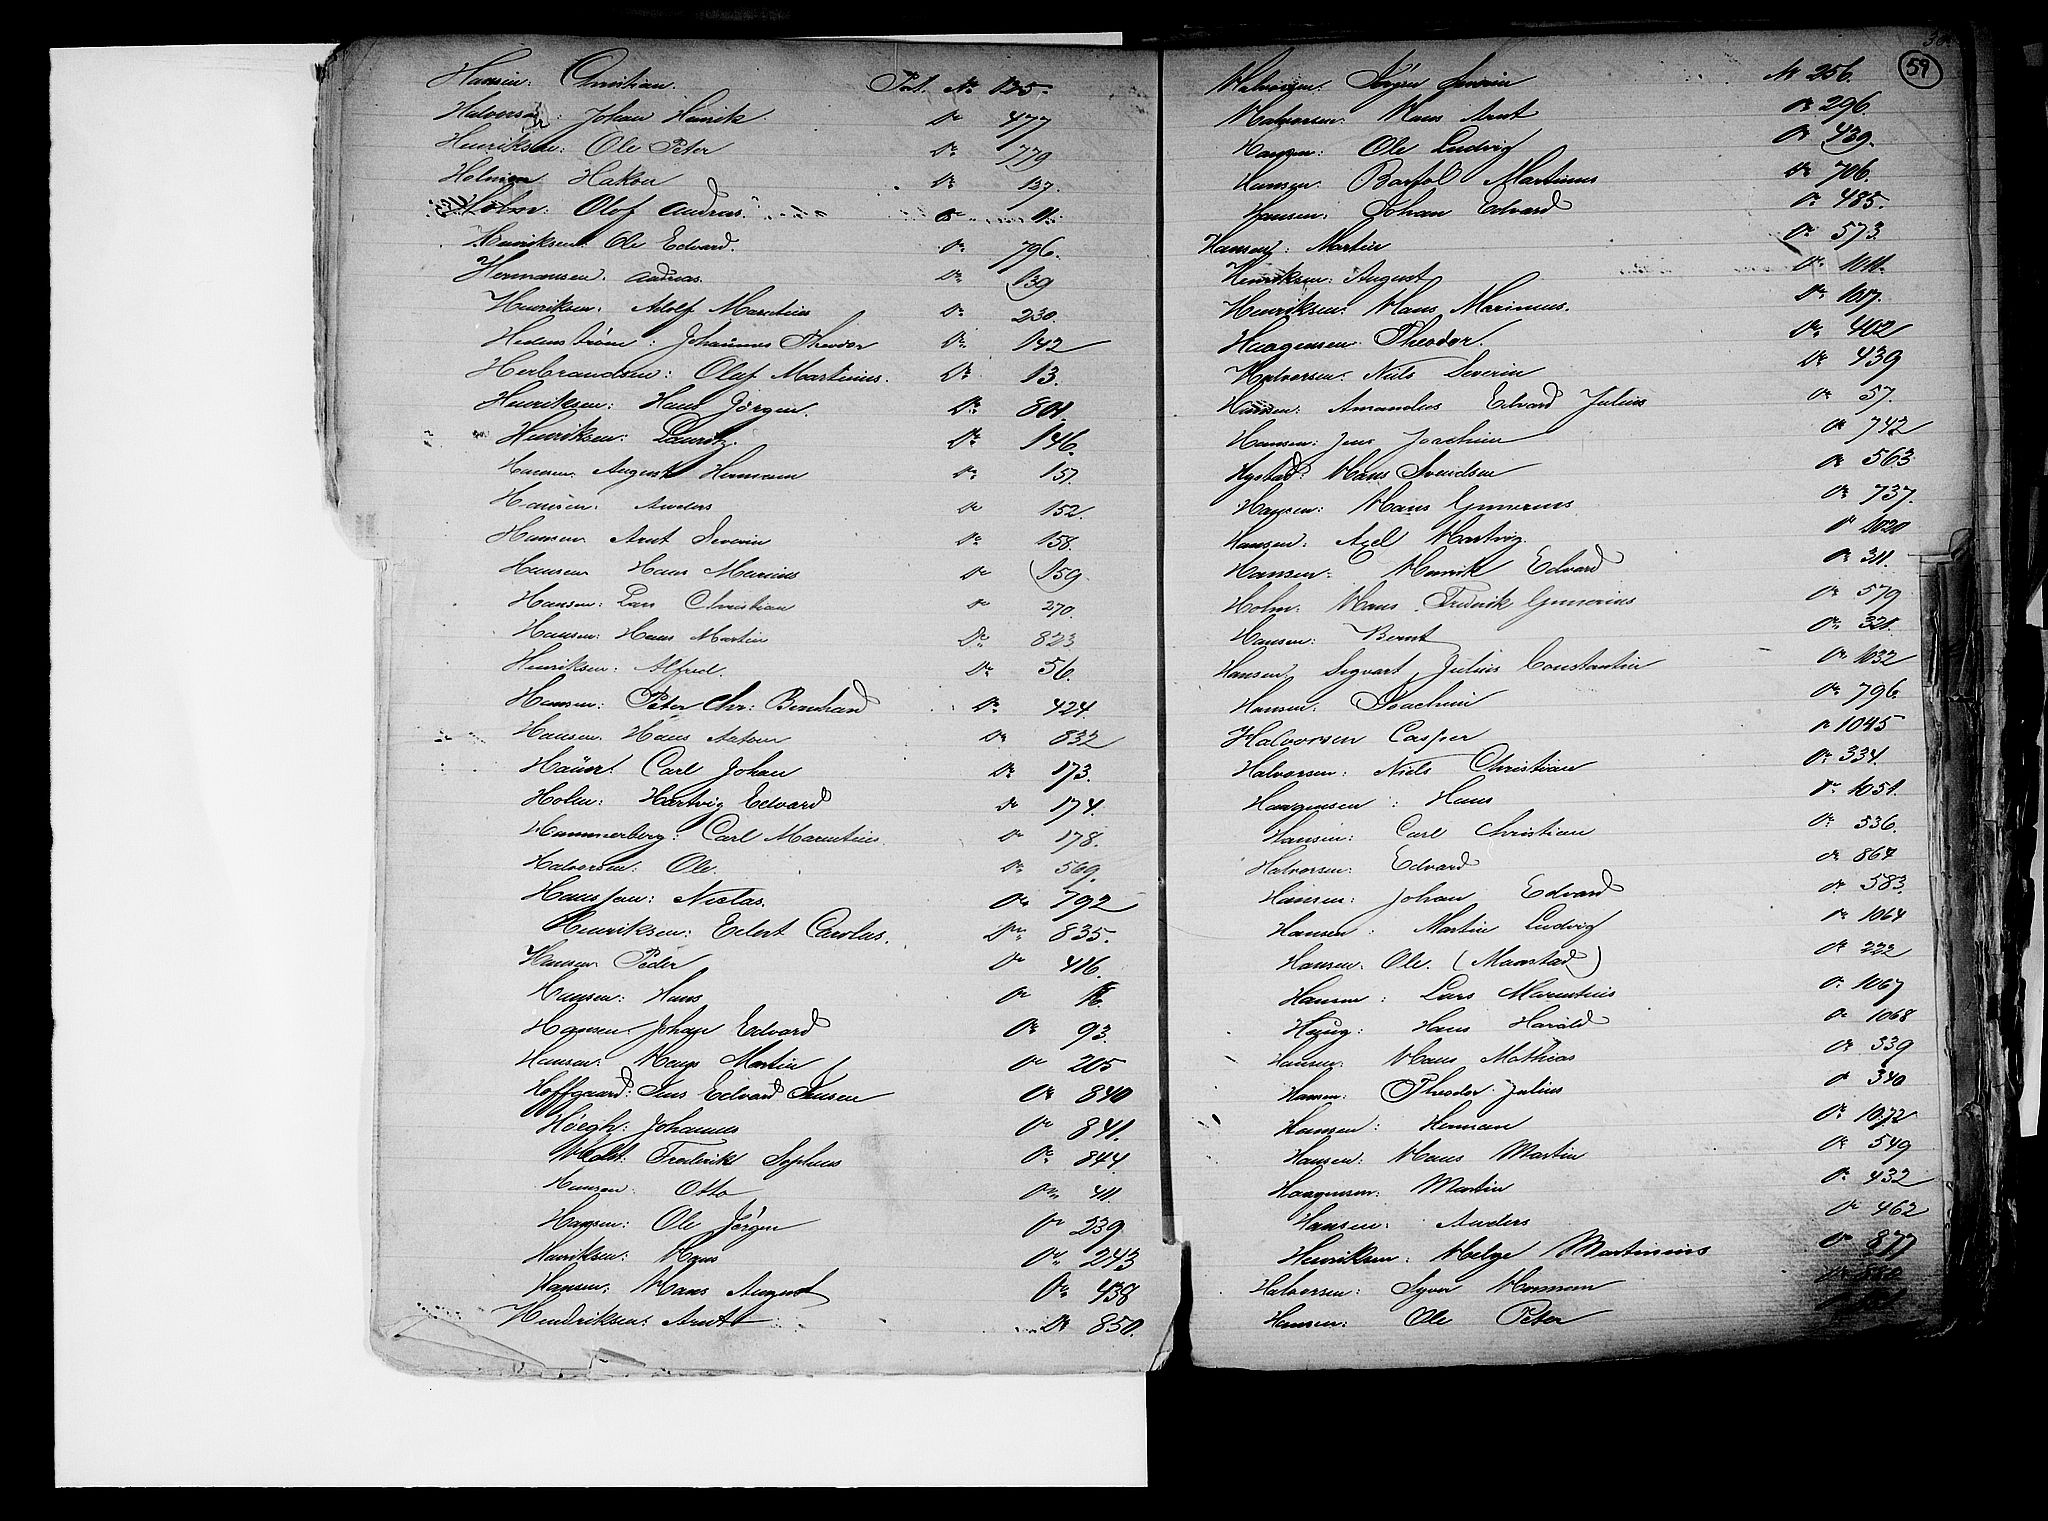 Hansen: Christian. Pat. No 125.
Halvorsen: Johan Henrik Do 477
Henriksen: Ole Peter Do 779
Holmsen Hakon Do 137.
Holm: Olof Andreas. Do 11.
Henriksen: Ole Edvard. Do 796.
Hermansen: Andreas. Do 139
Henriksen: Adolf Marentius Do 230.
Hedenstrøm: Johannes Theodor Do 142
Herbrandsen: Olaf Martinius. Do 13.
Henriksen: Hans Jørgen. Do 801.
Henriksen: Lauritz. Do 146.
Hansen August Hermann Do 157.
Hansen: Anders Do 152.
Hansen Arnt Severin Do 158.
Hansen Hans Marius Do 159.
Hansen: Lars Christian Do 270.
Hansen: Hans Martin Do 823
Henriksen: Alfred. Do 56.
Hansen: Peter Chr: Bernhard Do 424.
Hansen. Hans Do 832
Carl Johan Do 173.
Holm: Hartvig Edvard Do 174.
Hammerberg: Carl Marentius. Do 178.
Halvorsen: Ole. Do 569.
Hanssen: Niclas. Do 792
Henriksen: Edert Carolus. Do 835.
Hansen. Peder Do 416.
Hansen: Hans Do 16.
Hansen. Johan Edvard Do 93.
Hansen: Hans Martin Do 205
Hoffgaard: Jens Edvard Jensen Do 840
Høegh: Johannes Do 841.
Holst: Frederik Sophus Do 844.
Hansen: Otto Do 411.
Hansen: Ole Jörgen Do 239.
Henriksen: Hans Do 243
Hansen: Hans August Do 438
Hendriksen: Arnt Do 850.
59
Halvorsen: Jørgen Severin No 256.
Halvorsen: Hans Arnt Do 296.
Hansen: Ole Ludvig Do 439.
Hansen: Bartol Martinus Do 706.
Hansen: Johan Edvard Do 485.
Hansen: Martin Do 573.
Henriksen: August Do 1011.
Henriksen: Hans Marinius. Do 1017.
Haagensen: Theodor. Do 402
Halvorsen: Niels Severin Do 439
Hansen: Amandus Edvard Julius Do 57.
Hansen: Jens Joachim Do 742
Hystad: Hans Svendsen Do 563.
Hansen: Hans Gunerius Do 737.
Hansen: Axel Hartvig. Do 1020
Hansen: Henrik Edvard Do 311.
Holm: Hans Frederik Gunerius Do 579
Hansen: Bernt Do 321.
Hansen: Segvart Julius Constantin Do 1032
Hansen: Joachim Do 796.
Halvorsen Casper Do 1045
Halvorsen: Niels Christian Do 334.
Haagensen: Hans Do 1051.
Hansen: Carl Christian Do 536.
Halvorsen: Edvard Do 864
Hansen: Johan Edvard Do 583.
Hansen: Martin Ludvig Do 1064
Hansen: Ole. (Maastad) Do 222
Hansen: Lars Marentius Do 1067
Haug: Hans Harald Do 1068
Hansen: Hans Mathias Do 339
Hansen: Theodor Julius Do 340
Hansen: Herman Do 1072
Hansen: Hans Martin Do 549
Haagensen: Martin Do 432
Hansen: Anders Do 462
Henriksen: Helge Martinius Do 877
Halvorsen: Syver Do 880
Hansen: Ole Peter Do